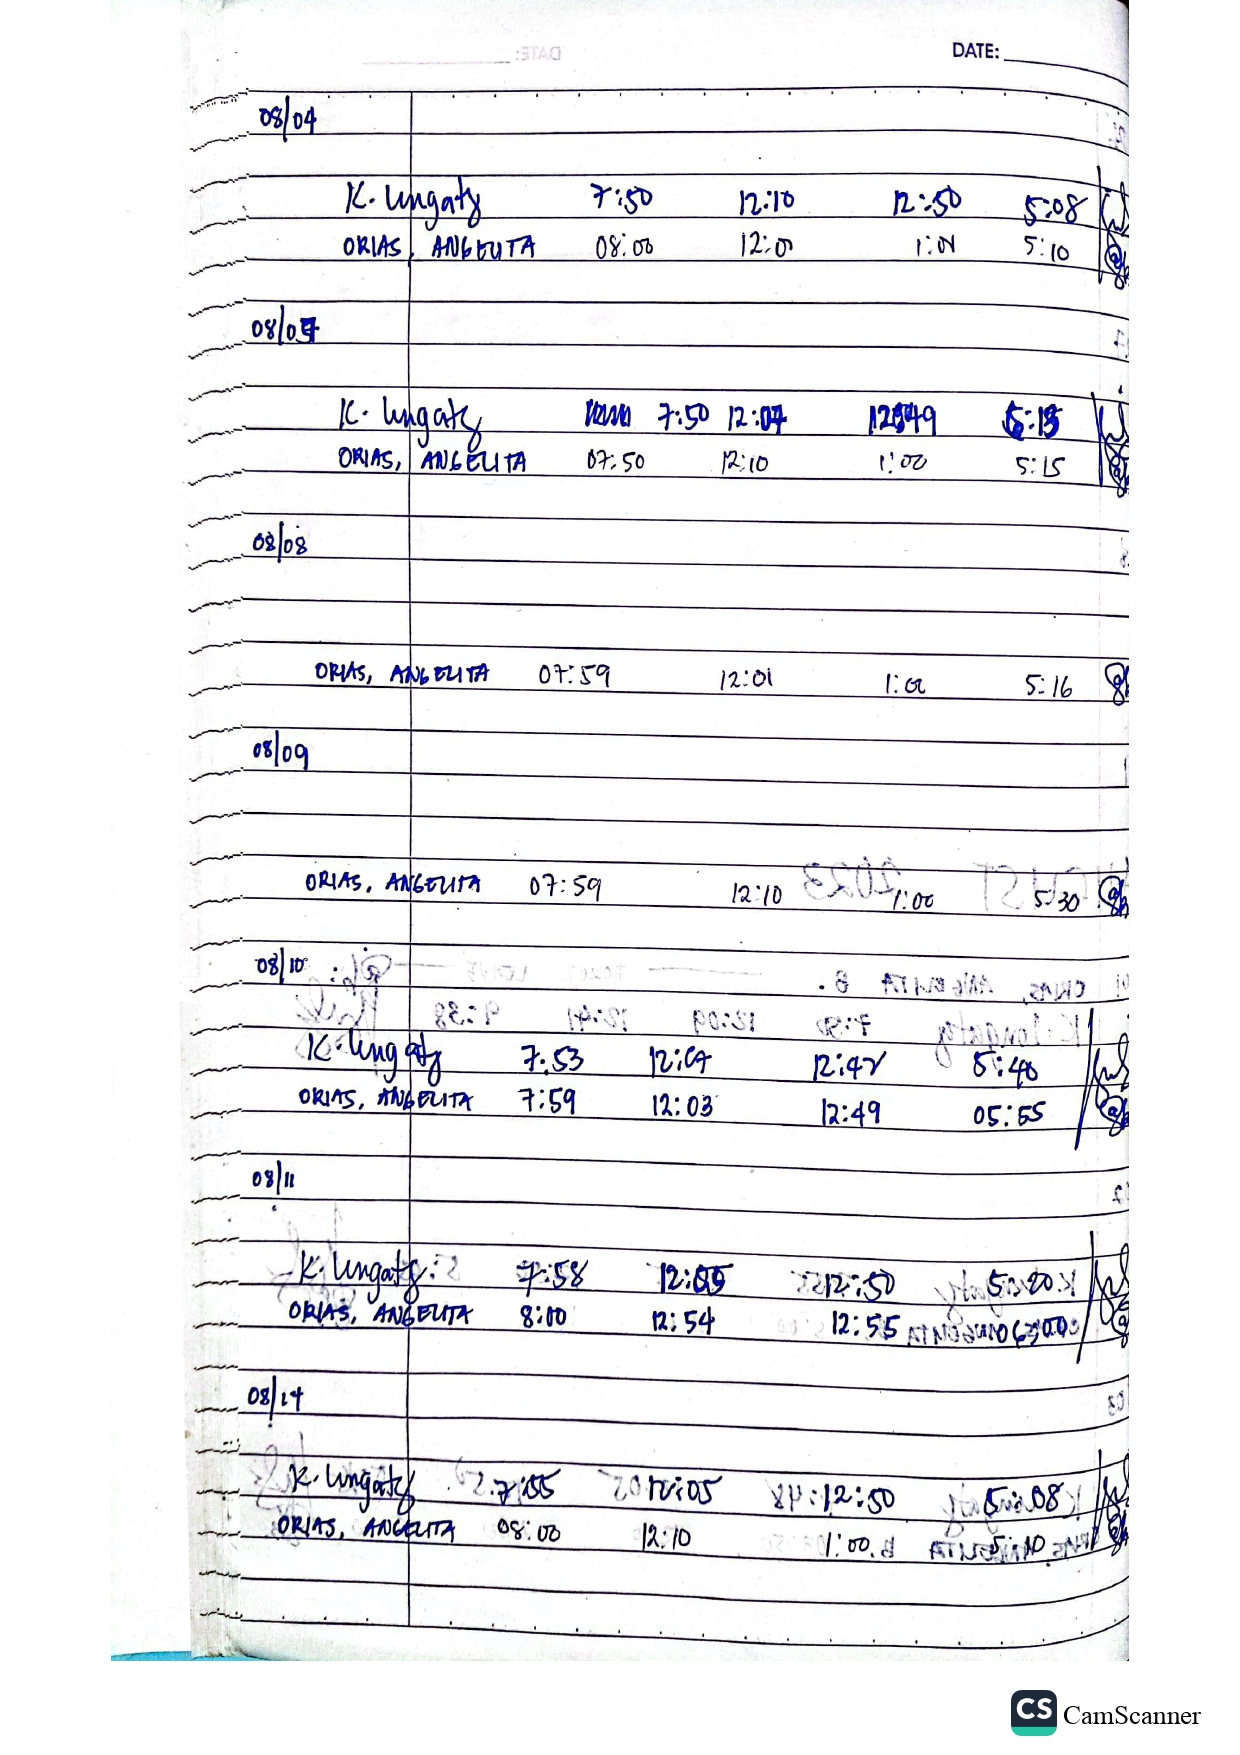 DATE:
08/04
K. Ungaty 7:50 12:10 12:50 5:08
ORIAS, ANGELITA 08:00 12:01 1:01 5:10
08/07
K. Ungaty 7:50 12:07 12:49 5:15
ORIAS, ANGELITA 07:50 12:10 1:00 5:15
08/08
ORIAS, ANGELITA 07:59 12:01 1:02 5:16
08/09
ORIAS, ANGELITA 07:59 12:10 1:00 5:30
08/10
K. Ungaty 7:53 12:07 12:42 5:40
ORIAS, ANGELITA 7:59 12:03 12:49 05:55
08/11
K. Ungaty 7:58 12:05 12:50 5:20
ORIAS, ANGELITA 8:00 12:54 12:55
08/14
K. Ungaty 7:55 12:05 12:50 5:08
ORIAS, ANGELITA 08:00 12:10 1:00 5:10
CS CamScanner